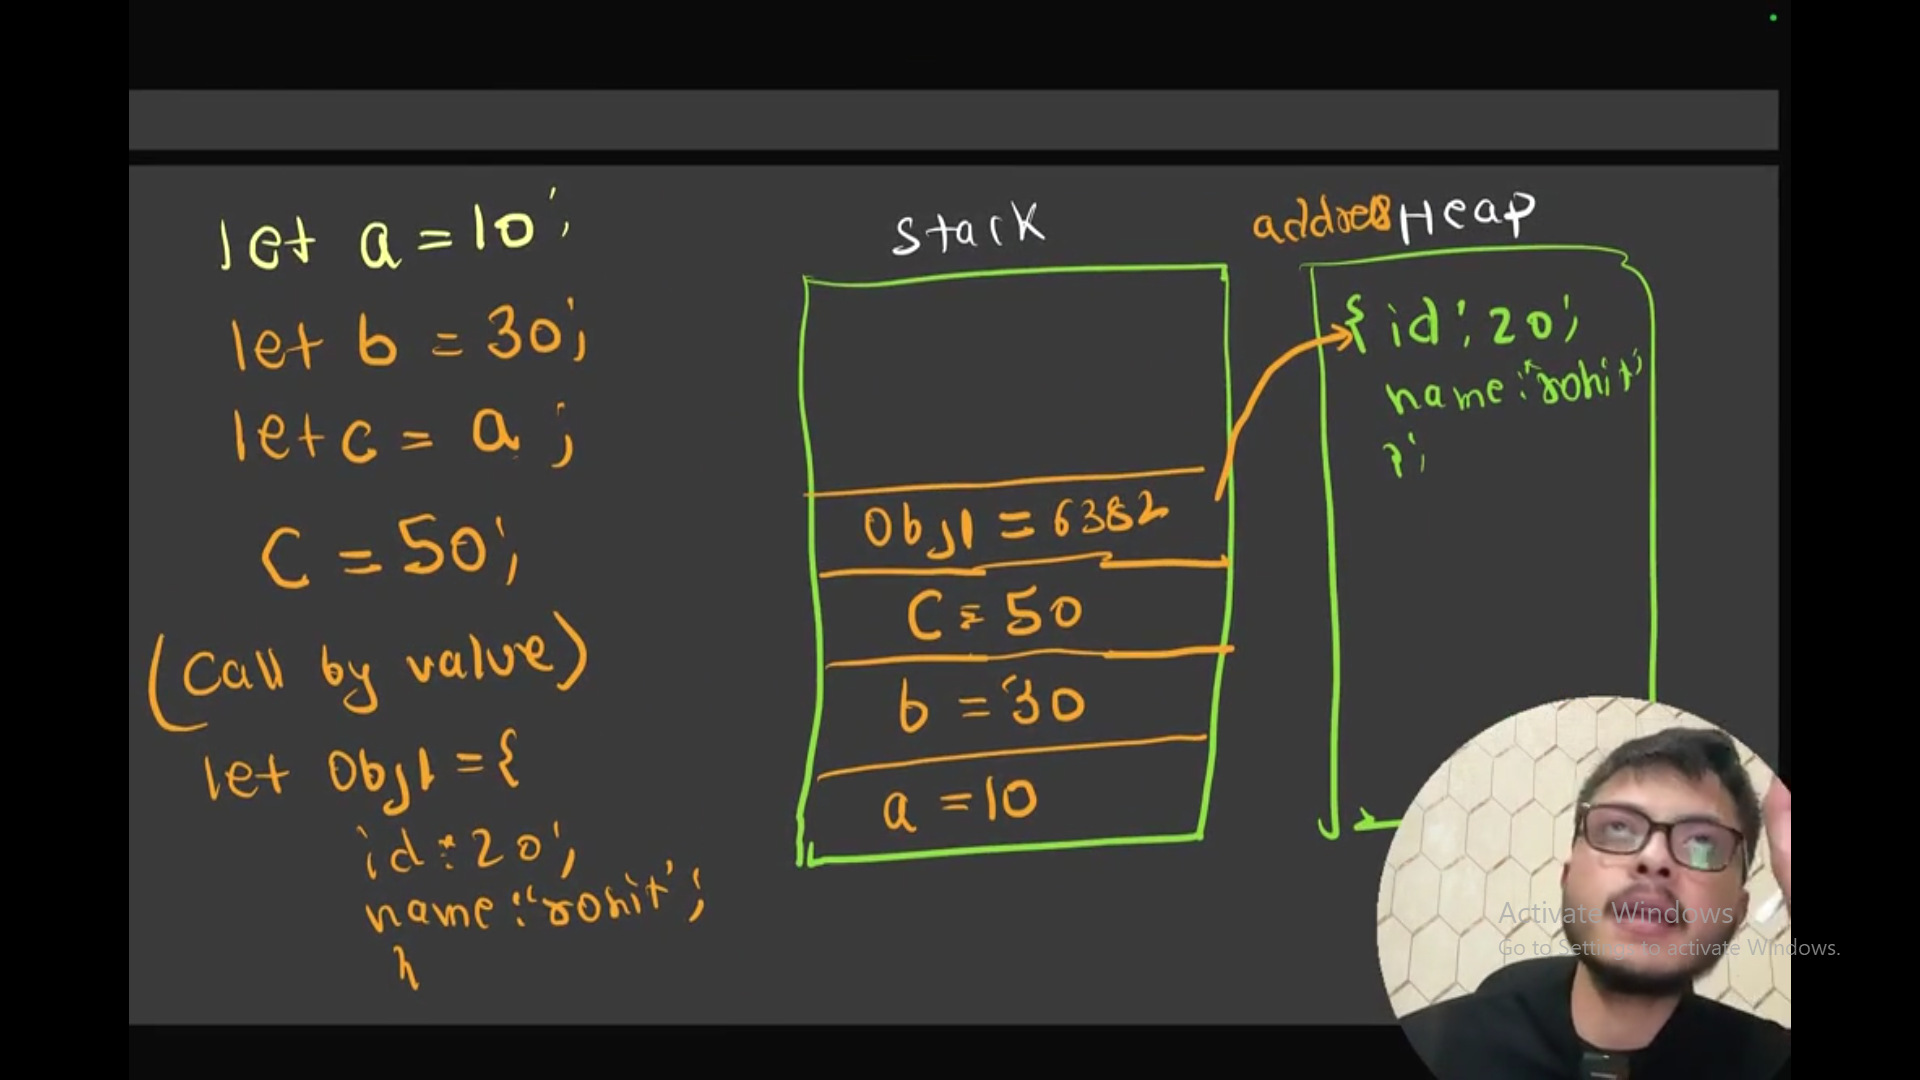 let a = 10;
let b = 30;
let c = a ;
C = 50;
(Call by value)
let Obj1 = {
id : 20;
name : "rohit";
}
Stack
Obj1 = 6382
C = 50
b = 30
a = 10
address Heap
{ id : 20;
name : "rohit"
};
Activate Windows
Go to Settings to activate Windows.